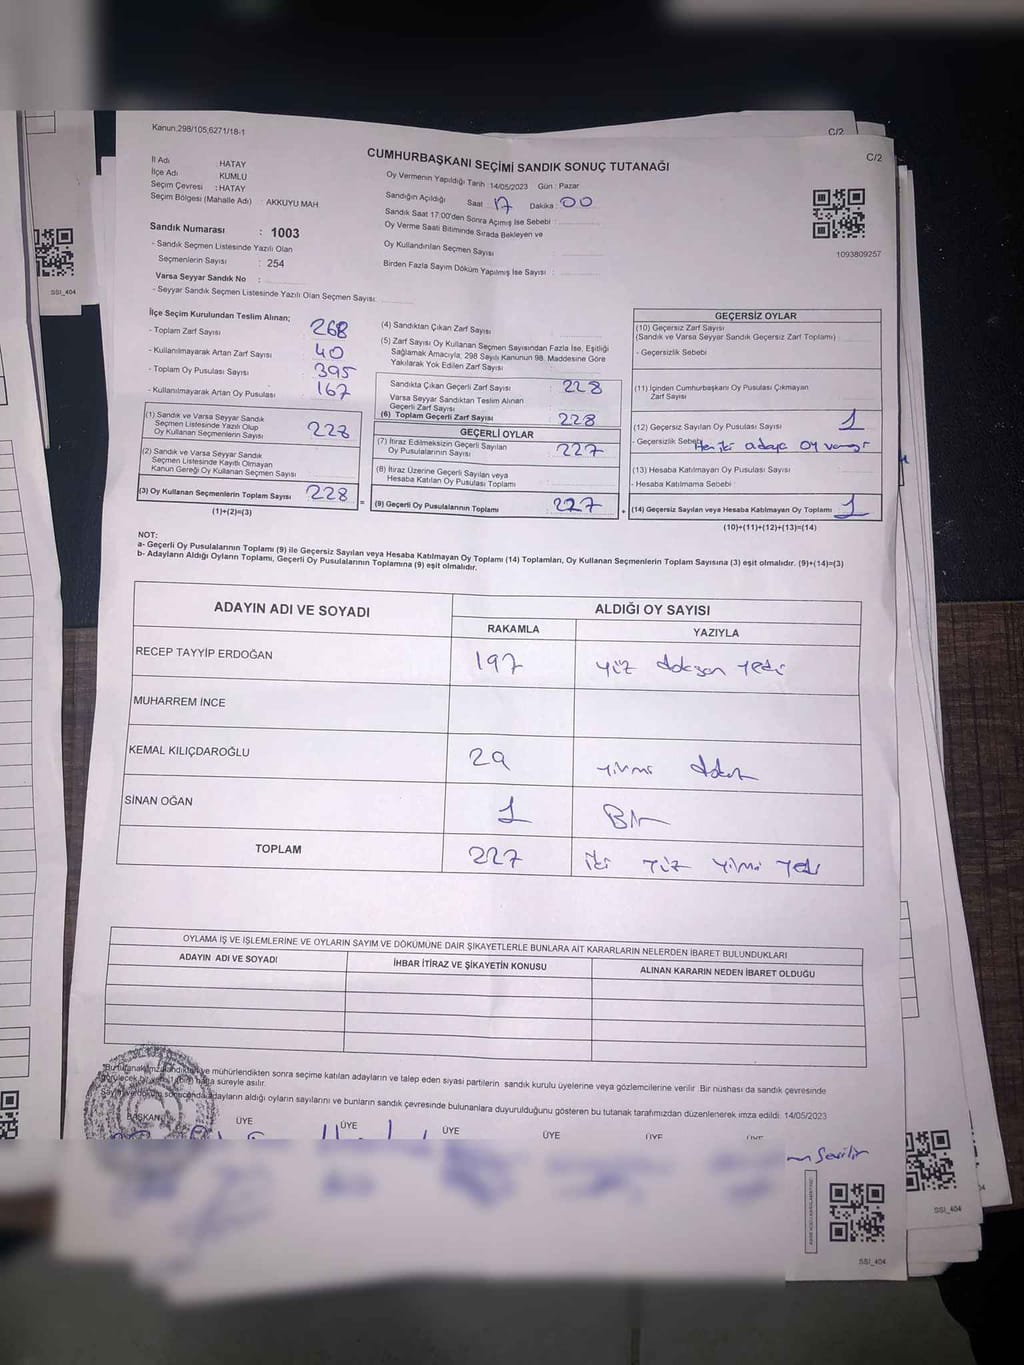 Kanun,298/105;6271/18-1
C/2
C/2
CUMHURBAŞKANI SEÇİMİ SANDIK SONUÇ TUTANAĞI
İl Adı : HATAY
İlçe Adı : KUMLU
Seçim Çevresi : HATAY
Seçim Bölgesi (Mahalle Adı) : AKKUYU MAH.
Oy Vermenin Yapıldığı Tarih : 14/05/2023 Gün : Pazar
Sandığın Açıldığı Saat : 17 Dakika : 00
Sandık Saat 17:00'den Sonra Açımış İse Sebebi :
Oy Verme Saati Bitiminde Sırada Bekleyen ve
Oy Kullandırılan Seçmen Sayısı
Birden Fazla Sayım Döküm Yapılmış İse Sayısı :
1093809257
Sandık Numarası : 1003
- Sandık Seçmen Listesinde Yazılı Olan
Seçmenlerin Sayısı : 254
Varsa Seyyar Sandık No :
- Seyyar Sandık Seçmen Listesinde Yazılı Olan Seçmen Sayısı:
İlçe Seçim Kurulundan Teslim Alınan;
- Toplam Zarf Sayısı 268
- Kullanılmayarak Artan Zarf Sayısı 40
- Toplam Oy Pusulası Sayısı 395
- Kullanılmayarak Artan Oy Pusulası 167
(1) Sandık ve Varsa Seyyar Sandık
Seçmen Listesinde Yazılı Olup
Oy Kullanan Seçmenlerin Sayısı 228
(2) Sandık ve Varsa Seyyar Sandık
Seçmen Listesinde Kayıtlı Olmayan
Kanun Gereği Oy Kullanan Seçmen Sayısı
(3) Oy Kullanan Seçmenlerin Toplam Sayısı 228
(1)+(2)=(3)
(4) Sandıktan Çıkan Zarf Sayısı
(5) Zarf Sayısı Oy Kullanan Seçmen Sayısından Fazla İse, Eşitliği
Sağlamak Amacıyla, 298 Sayılı Kanunun 98. Maddesine Göre
Yakılarak Yok Edilen Zarf Sayısı
Sandıkta Çıkan Geçerli Zarf Sayısı : 228
Varsa Seyyar Sandıktan Teslim Alınan
Geçerli Zarf Sayısı
(6) Toplam Geçerli Zarf Sayısı : 228
GEÇERLİ OYLAR
(7) İtiraz Edilmeksizin Geçerli Sayılan
Oy Pusulalarının Sayısı : 227
(8) İtiraz Üzerine Geçerli Sayılan veya
Hesaba Katılan Oy Pusulası Toplamı
(9) Geçerli Oy Pusulalarının Toplamı : 227
GEÇERSİZ OYLAR
(10) Geçersiz Zarf Sayısı
(Sandık ve Varsa Seyyar Sandık Geçersiz Zarf Toplamı)
- Geçersizlik Sebebi
(11) İçinden Cumhurbaşkanı Oy Pusulası Çıkmayan
Zarf Sayısı
(12) Geçersiz Sayılan Oy Pusulası Sayısı 1
- Geçersizlik Sebebi Her iki adaya oy
(13) Hesaba Katılmayan Oy Pusulası Sayısı
- Hesaba Katılmama Sebebi :
(14) Geçersiz Sayılan veya Hesaba Katılmayan Oy Toplamı 1
(10)+(11)+(12)+(13)=(14)
NOT:
a- Geçerli Oy Pusulalarının Toplamı (9) ile Geçersiz Sayılan veya Hesaba Katılmayan Oy Toplamı (14) Toplamları, Oy Kullanan Seçmenlerin Toplam Sayısına (3) eşit olmalıdır. (9)+(14)=(3)
b- Adayların Aldığı Oyların Toplamı, Geçerli Oy Pusulalarının Toplamına (9) eşit olmalıdır.
ADAYIN ADI VE SOYADI ALDIĞI OY SAYISI
RAKAMLA YAZIYLA
RECEP TAYYİP ERDOĞAN 197 yüz doksan yedi
MUHARREM İNCE
KEMAL KILIÇDAROĞLU 29 yirmi dokuz
SİNAN OĞAN 1 Bir
TOPLAM 227 iki yüz yirmi yedi
OYLAMA İŞ VE İŞLEMLERİNE VE OYLARIN SAYIM VE DÖKÜMÜNE DAİR ŞİKAYETLERLE BUNLARA AİT KARARLARIN NELERDEN İBARET BULUNDUKLARI
ADAYIN ADI VE SOYADI İHBAR İTİRAZ VE ŞİKAYETİN KONUSU ALINAN KARARIN NEDEN İBARET OLDUĞU
mühürlendikten sonra seçime katılan adayların ve talep eden siyasi partilerin sandık kurulu üyelerine veya gözlemcilerine verilir. Bir nüshası da sandık çevresinde
hafta süreyle asılır.
adayların aldığı oyların sayılarını ve bunların sandık çevresinde bulunanlara duyurulduğunu gösteren bu tutanak tarafımızdan düzenlenerek imza edildi. 14/05/2023
BAŞKAN ÜYE ÜYE ÜYE ÜYE ÜYE
SSI_404
SSI_404
SSI_404